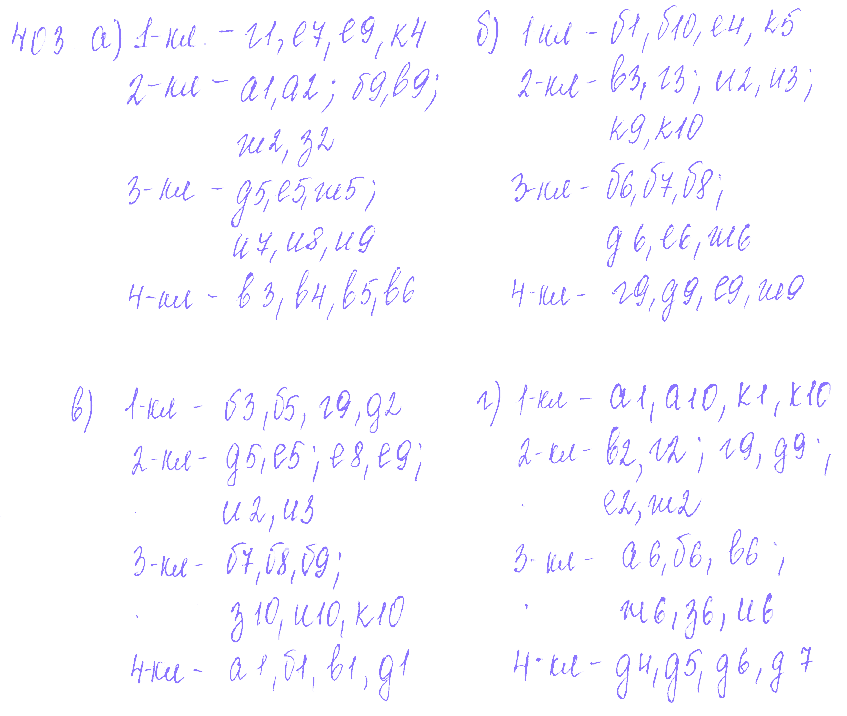 403 а) 1-кл. - г1, е7, е9, к4
2-кл - а1, а2; б9, в9;
ж2, з2
3-кл - д5, е5, ж5;
и7, и8, и9
4-кл - в3, в4, в5, в6
б) 1кл - б1, б10, е4, к5
2-кл - в3, г3; и2, и3;
к9, к10
3-кл - б6, б7, б8;
д6, е6, ж6
4-кл - г9, д9, е9, ж9
в) 1-кл - б3, б5, г9, д2
2-кл - д5, е5; е8, е9;
и2, и3
3-кл - б7, б8, б9;
з10, и10, к10
4-кл - а1, б1, в1, д1
г) 1-кл - а1, а10, к1, к10
2-кл - в2, г2; г9, д9;
е2, ж2
3-кл - а6, б6, в6;
ж6, з6, и6
4-кл - д4, д5, д6, д7